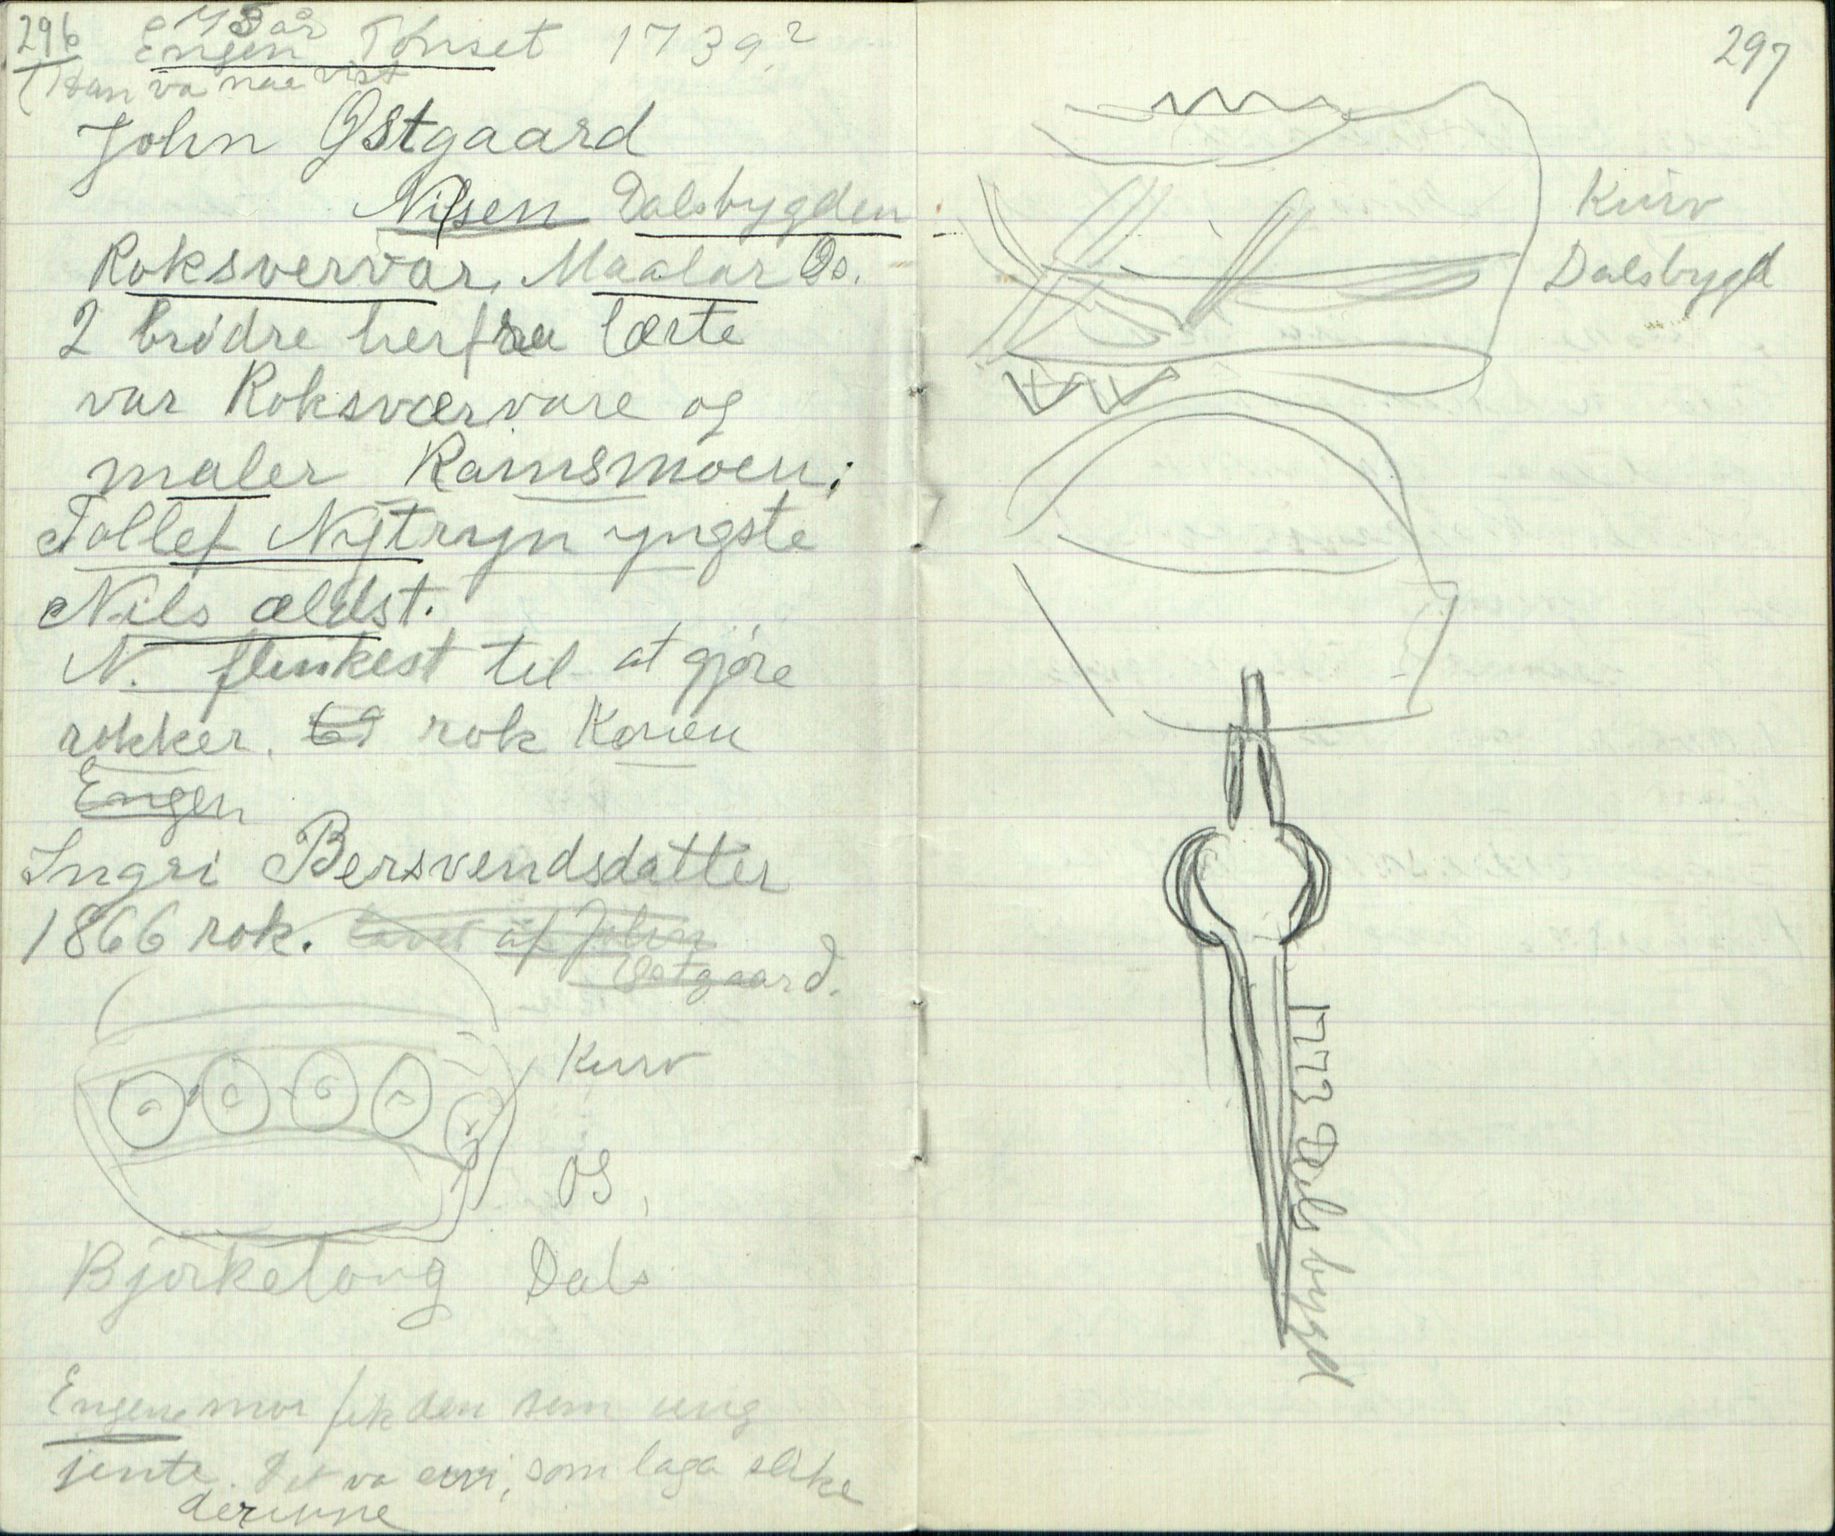 296
Engen Tönset 1739?
(Han va nae vist
John Østgaard
Nilsen Dalsbygden
Roksvervar, Maalar Os.
2 brødre herfra lærte
var Roksværvare og
maler Ramsmoen;
Tollef Nytrøyn yngste
Nils ældst.
N. flinkest til at gjøre
rokker. rok Koren
Engen
Ingri Bersvendsdatter
1866 rok. lavet af John
Østgaard.
Kurv
OS,
Bjørkelang Dals
Engens mor fik den som ung
jente. Det va ein, som laga slike
derinne
297
Kurv
Dalsbygd
1773 Dalsbygd